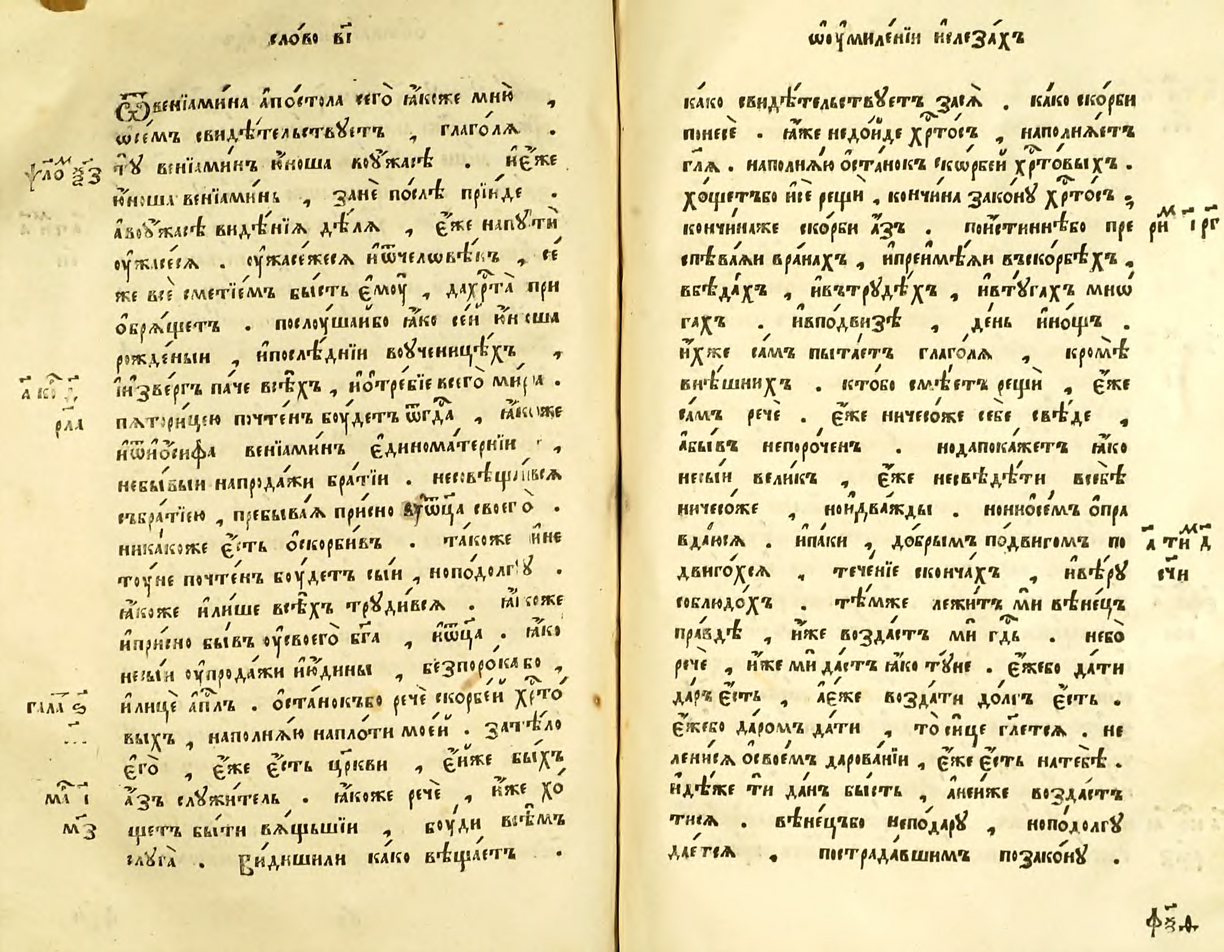 сло́во в҃і
Ѿвенїами́на а҆по́стола сего̀ ꙗ҆́коже мню̀ ,
ѡсе́мъ свидѣ́тельствꙋетъ , глаго́лѧ .
тꙋ̀ венїами́нъ ю҆́ноша воꙋ҆́жасѣ . и҆є҆́же
ю҆́ноша венїами́нь , занѐ послѣ̀ прїи́де .
а҆воꙋ҆́жасѣ видѣ́нїѧ дѣ́лѧ , є҆́же напꙋтѝ
оу҆жасесѧ . оу҆жасе́жесѧ и҆ѿчеловѣ́къ , се́
же всѐ сме́тїемъ бы́сть є҆моу̀ , дахр҇та̀ при
ѻ҆брѧ́щетъ . послоу́шаибо ꙗ҆́ко се́й ю҆́ноша
рожде́ныи , и҆послѣ́днїи воу҆чени́цѣхъ ,
и҆и҆́звергъ па́че всѣ́хъ , и҆ѻ҆тре́бїе всего̀ ми́ра .
пѧтори́цею почте́нъ боу́детъ ѿгд҇а̀ , ꙗ҆́коже
и҆ѿїѻ҆́сифа венїами́нъ є҆динома́тернїи ,
небы́выи напрода́жи бра́тїи . несовѣща́всѧ
събра́тїею , пребыва́ѧ при́сно вꙋѿца̀ своего̀ .
ника́коже є҆́сть ѻ҆скорби́въ . та́коже и҆не
тоу́не почте́нъ боу́детъ сы́и , нопо́долгꙋ .
ꙗ҆́коже и҆ли́ше всѣ́хъ трꙋди́всѧ . ꙗ҆́коже
и҆при́сно бы́въ оу҆своего̀ бг҃а , и҆ѿца̀ . ꙗ҆́ко
несы́и оу҆прода́жи и҆ю҆́дины , безпоро́ка бо ,
и҆лицѐ а҆пл҃ъ . ѻ҆ста́нокъбо речѐ скорбе́й хр҇то́
выхъ , наполнѧ́ю напло́ти мое́й . затѣ́ло
є҆го̀ , є҆́же є҆́сть цр҃кви , є҆йже бы́хъ
а҆́зъ слꙋжи́тель . ꙗ҆́коже речѐ , и҆́же хо́
щетъ бы́ти вѧ́щьшїи , боу́ди всѣ́мъ
слꙋга̀ . Ви́дишили ка́ко вѣща́етъ .
гала҇ ѕ҃
ма҇ і҃
м҃з
ѡ҆оу҆миле́нїи и҆слеза́хъ
ка́ко свидѣ́тельствꙋетъ засѧ̀ . ка́ко ско́рби
понесѐ . ꙗ҆́же недо́йде хр҇то́съ , наполнѧ́етъ
гл҃ѧ . наполнѧ́ю ѻ҆ста́нокъ скѡ́рбей хр҇то́выхъ .
хо́щетъбо и҆сѐ рещѝ , кончи́на зако́нꙋ хр҇то́съ ;
кончи́наже ско́рби а҆́зъ . пои҆́стиннѣбо пре
спѣва́ѧи вра́нахъ , и҆преимѣ́ѧи въско́рбѣхъ ,
вбѣда́хъ , и҆втрꙋдѣ́хъ , и҆втꙋга́хъ мнѡ́
гахъ . и҆впо́двизѣ , де́нь и҆но́щъ .
и҆́хже са́мъ пыта́етъ глаго́лѧ , кромѣ̀
внѣ́шнихъ . кто́бо смѣ́етъ рещѝ , є҆́же
са́мъ речѐ . є҆́же ничесо́же себѐ свѣ́де ,
а҆бы́въ непоро́ченъ . нода́пока́жетъ ꙗ҆́ко
несы́и вели́къ , є҆́же несвѣ́дѣти всебѣ̀
ничесо́же , нои҆два́жды . нонио́семъ о҆пра
вда́юсѧ . и҆па́ки , до́брымъ по́двигомъ по
двиго́хсѧ , тече́нїе сконча́хъ , и҆вѣ́рꙋ
соблюдо́хъ . тѣ́мже лежи́тъ мѝ вѣне́цъ
пра́вдѣ , и҆́же возда́стъ мѝ гд҇ь . небо̀
речѐ , и҆́же мѝ да́стъ ꙗ҆́ко тꙋ́не . є҆́жебо да́ти
да́ръ є҆́сть , а҆є҆́же возда́ти до́лгъ є҆́сть .
є҆́жебо да́ромъ да́ти , то̀ си́це гл҃етсѧ . не
лени́сѧ ѻ҆свое́мъ дарова́нїи , є҆́же є҆́сть натебѣ̀ .
и҆дѣ́же тѝ да́нъ бы́сть , а҆не́иже возда́стъ
тисѧ . вѣне́цъбо непо́дарꙋ , нопо́долгꙋ
дае́тсѧ , пострада́вшимъ позако́нꙋ .